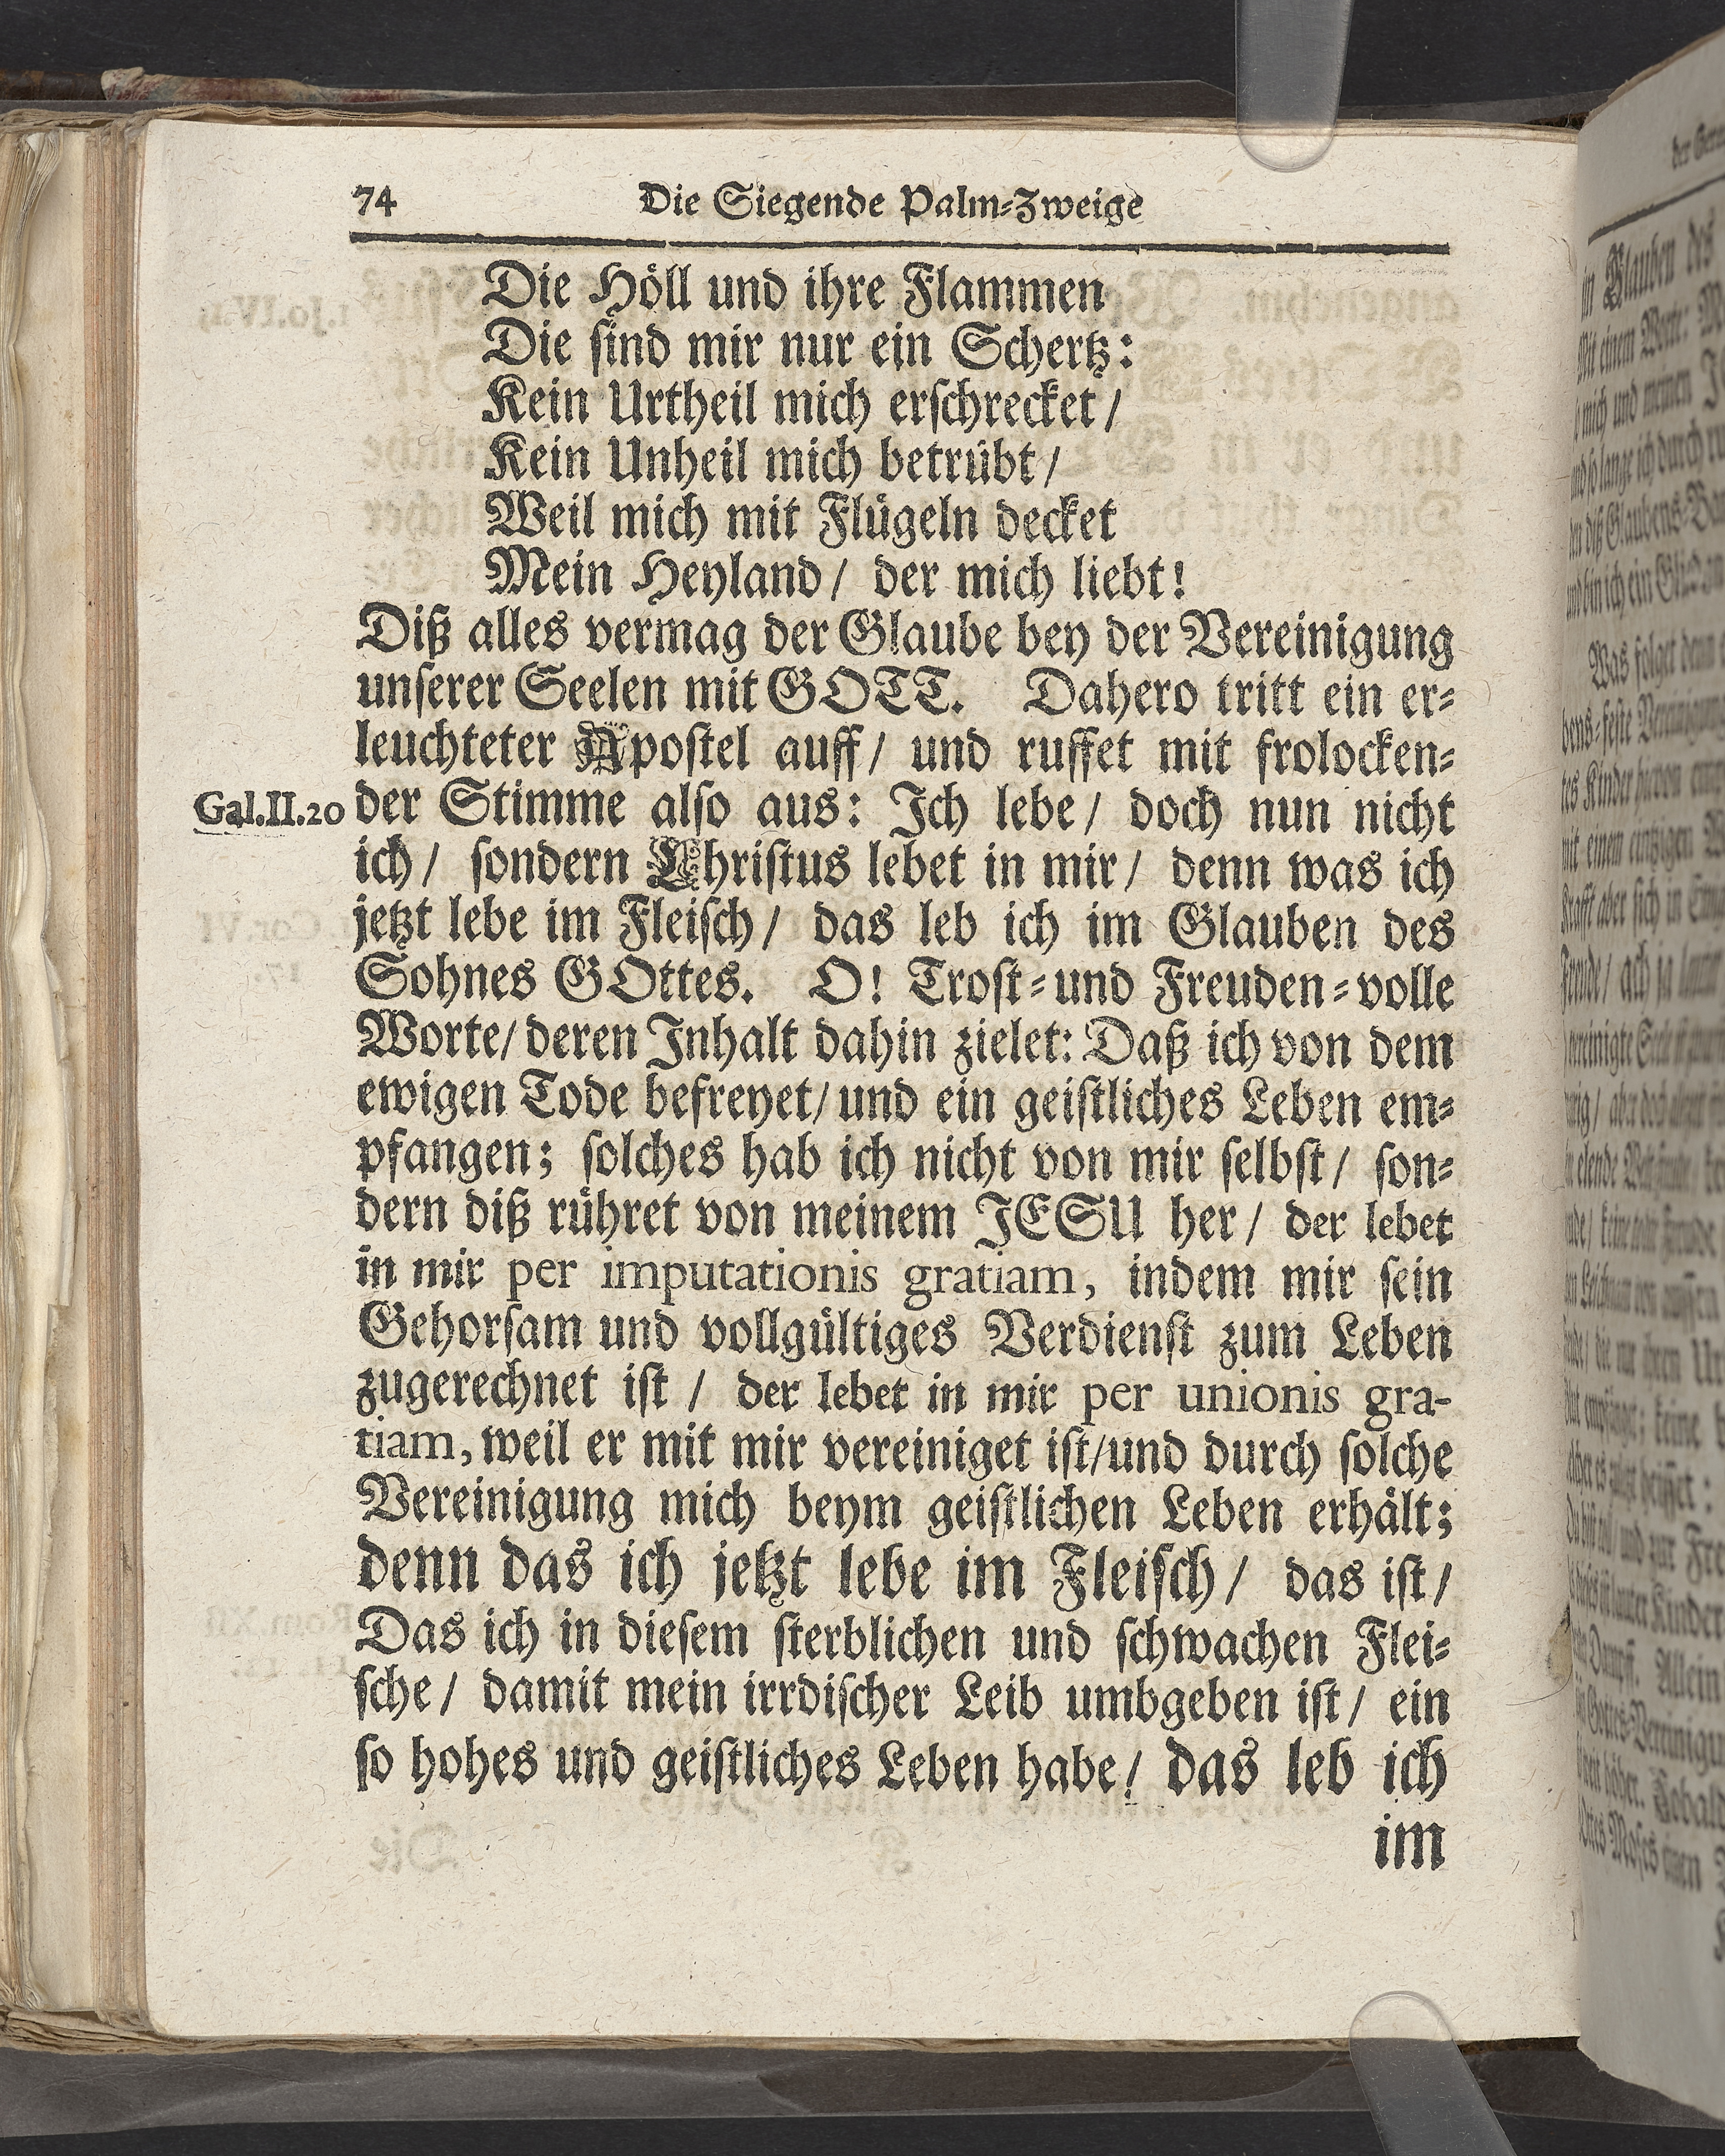 74 Die Siegende Palm-Zweige
Die Höll und ihre Flammen
Die sind mir nur ein Schertz:
Kein Urtheil mich erschrecket /
Kein Unheil mich betrübt /
Weil mich mit Flügeln decket
Mein Heyland / der mich liebt!
Diß alles vermag der Glaube bey der Vereinigung
unserer Seelen mit GOTT. Dahero tritt ein er-
leuchteter Apostel auff / und ruffet mit frolocken-
Gal.II.20 der Stimme also aus: Ich lebe / doch nun nicht
ich / sondern Christus lebet in mir / denn was ich
jetzt lebe im Fleisch / das leb ich im Glauben des
Sohnes GOttes. O! Trost-und Freuden-volle
Worte / deren Inhalt dahin zielet: Daß ich von dem
ewigen Tode befreyet / und ein geistliches Leben em-
pfangen; solches hab ich nicht von mir selbst / son-
dern diß rühret von meinem JESU her / der lebet
in mir per imputationis gratiam, indem mir sein
Gehorsam und vollgültiges Verdienst zum Leben
zugerechnet ist / der lebet in mir per unionis gra-
tiam, weil er mit mir vereiniget ist / und durch solche
Vereinigung mich beym geistlichen Leben erhält;
denn das ich jetzt lebe im Fleisch / das ist /
Das ich in diesem sterblichen und schwachen Flei-
sche / damit mein irrdischer Leib umbgeben ist / ein
so hohes und geistliches Leben habe / das leb ich
im